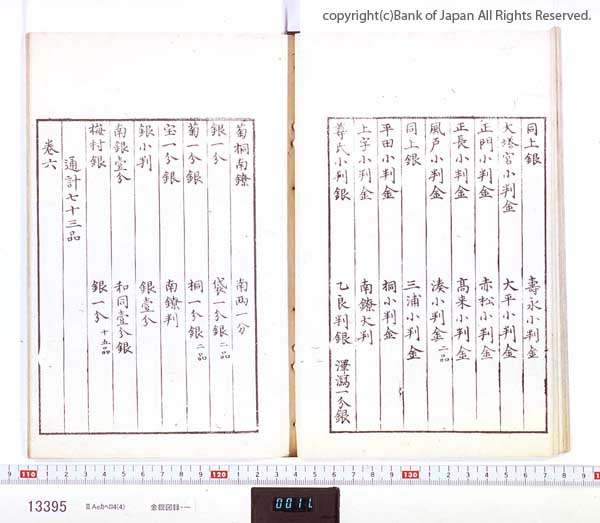 copyright(c)Bank of Japan All Rights Reserved.
同上銀 壽永小判金
大塔宮小判金 大平小判金
正門小判金 赤松小判金
正長小判金 高来小判金
風戸小判金 湊小判金二品
同上銀 三浦小判金
平田小判金 桐小判金
上字小判金 南鐐大判
尊氏小判銀 乙良判銀 澤瀉一分銀
菊桐南鐐 南両一分
銀一分 袋一分銀二品
菊一分銀 桐一分銀二品
宝一分銀 南鐐判
銀小判 銀壹分
南銀壹分 和同壹分銀
梅村銀 銀一分十五品
通計七十三品
卷六
110 120 130
13395 金銀図録·一
0011